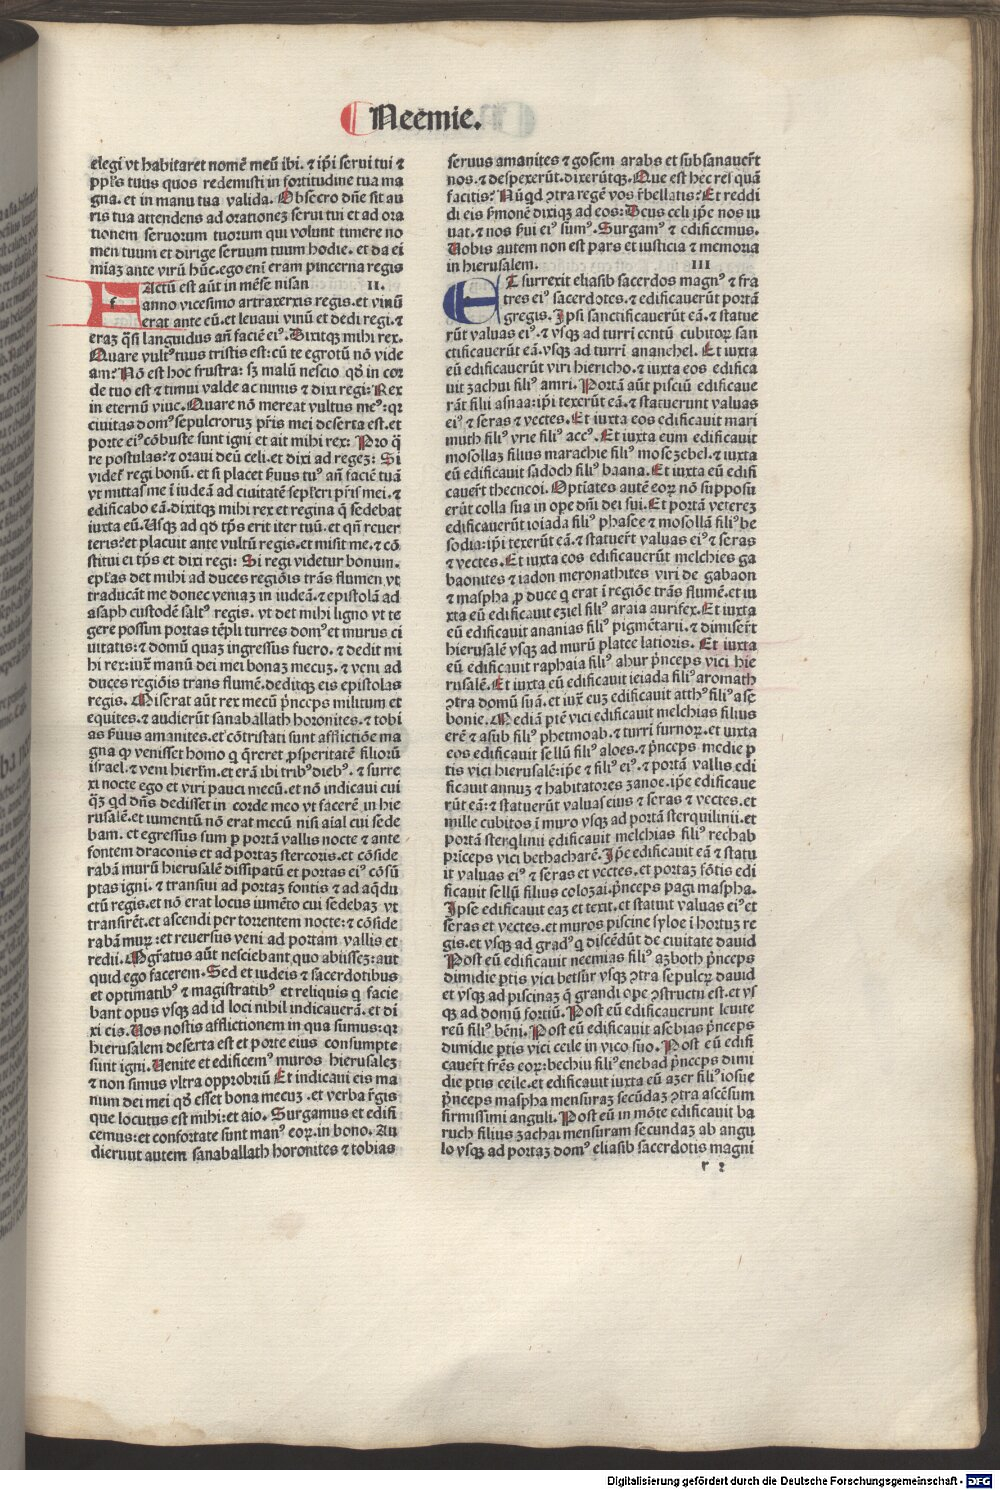 Neemie.
elegi vt habitaret nomē meū ibi. ⁊ ip̄i serui tui ⁊
pp̄l's tuus quos redemisti in fortitudine tua ma
gna. et in manu tua valida. Obsecro dn̄e sit au
ris tua attendens ad orationeꝫ serui tui et ad ora
tionem seruorum tuorum qui volunt timere no
men tuum et dirige seruum tuum hodie. et da ei
mīaꝫ ante virū hūc. ego enī eram pincerna regis
Actū est aūt in mēse nisan II.
anno vicesimo artraxerxis regis. et vinū
erat ante eū. et leuaui vinū et dedi regi. ⁊
eraꝫ q̄si languidus an̄ faciē eiꝰ. Dixitqꝫ mihi rex.
Quare vultꝰ tuus tristis est: cū te egrotū nō vide
am? Nō est hoc frustra: sꝫ malū nescio qḋ in cor
de tuo est ⁊ timui valde ac nimis ⁊ dixi regi: Rex
in eternū viue. Quare nō mereat vultus meꝰ: qꝛ
ciuitas domꝰ sepulcroruꝫ pr̄is mei deserta est. et
porte eiꝰ cōbuste sunt igni et ait mihi rex: Pro q̄
re postulas? ⁊ oraui deū celi. et dixi ad regeꝫ: Si
videt̄ regi bonū. et si placet s̄uus tuꝰ an̄ faciē tuā
vt mittas me ī iudeā ad ciuitatē sepl'cri pr̄is mei. ⁊
edificabo eā. dixitqꝫ mihi rex et regina q̄ sedebat
iuxta eū. Usqꝫ ad qḋ tp̄s erit iter tuū. et qn̄ reuer
teris? et placuit ante vultū regis. et misit me. ⁊ cō
stitui ei tp̄s et dixi regi: Si regi videtur bonum.
epl'as det mihi ad duces regiōis trās flumen vt
traducāt me donec veniaꝫ in iudeā. ⁊ epistolā ad
asaph custodē saltꝰ regis. vt det mihi ligno vt te
gere possim portas tēpli turres domꝰ et murus ci
uitatis: ⁊ domū quaꝫ ingressus fuero. ⁊ dedit mi
hi rex: iux̄ manū dei mei bonaꝫ mecuꝫ. ⁊ veni ad
duces regiōis trans flumē. deditqꝫ eis epistolas
regis. Miserat aūt rex mecū p̄nceps militum et
equites. ⁊ audierūt sanaballath horonites. ⁊ tobi
as s̄uus amanites. et cōtristati sunt afflictiōe ma
gna ꝙ venisset homo q q̄reret ꝓsperitatē filiorū
israel. ⁊ veni hierl'm. et erā ibi tribꝰ diebꝰ. ⁊ surre
xi nocte ego et viri pauci mecū. et nō indicaui cui
q̄ꝫ qd dn̄s dedisset in corde meo vt facerē in hie
rusalē. et iumentū nō erat mecū nisi aīal cui sede
bam. et egressus sum ꝑ portā vallis nocte ⁊ ante
fontem draconis et ad portaꝫ stercoris. et cōside
rabā murū hierusalē dissipatū et portas eiꝰ cōsū
ptas igni. ⁊ transiui ad portaꝫ fontis ⁊ ad aq̄du
ctū regis. et nō erat locus iumēto cui sedebaꝫ vt
transirēt. et ascendi per torrentem nocte: ⁊ cōside
rabā murꝫ: et reuersus veni ad portam vallis et
redii. Mgr̄atus aūt nesciebant quo abiisseꝫ: aut
quid ego facerem. Sed et iudeis ⁊ sacerdotibus
et optimatibꝰ ⁊ magistratibꝰ et reliquis q facie
bant opus vsqꝫ ad id loci nihil indicauerā. et di
xi eis. Uos nostis afflictionem in qua sumus: qꝛ
hierusalem deserta est et porte eius consumpte
sunt igni. Uenite et edificemꝰ muros hierusaleꝫ
⁊ non simus vltra opprobriū Et indicaui eis ma
num dei mei qḋ esset bona mecuꝫ. et verba r̄gis
que locutus est mihi: et aio. Surgamus et edifi
cemus: et confortate sunt manꝰ eoꝝ. in bono. Au
dierunt autem sanaballath horonites ⁊ tobias
seruus amanites ⁊ gosem arabs et subsanauer̄t
nos. ⁊ despexerūt. dixerūtqꝫ. Que est hec res quā
facitis? Nūqd ꝯtra regē vos r̄bellatis? Et reddi
di eis s̄monē dixiqꝫ ad eos: Deus celi ip̄e nos iu
uat. ⁊ nos s̄ui eiꝰ sumꝰ. Surgamꝰ ⁊ edificemus.
Uobis autem non est pars et iusticia ⁊ memoria
in hierusalem. III
ET surrexit eliasib sacerdos magnꝰ ⁊ fra
tres eiꝰ sacerdotes. ⁊ edificauerūt portā
gregis. Ipsi sanctificauerūt eā. ⁊ statue
rūt valuas eiꝰ. ⁊ vsqꝫ ad turrī centū cubitoꝝ san
ctificauerūt eā. vsqꝫ ad turrī ananehel. Et iuxta
eū edificauerūt viri hiericho. ⁊ iuxta eos edifica
uit zachui filiꝰ amri. Portā aūt pisciū edificaue
rāt filii asnaa: ip̄i texerūt eā. ⁊ statuerunt valuas
eiꝰ ⁊ seras ⁊ vectes. Et iuxta eos edificauit mari
muth filiꝰ vrie filiꝰ accꝰ. Et iuxta eum edificauit
mosollaꝫ filius marachie filiꝰ mosezebel. ⁊ iuxta
eū edificauit sadoch filiꝰ baana. Et iuxta eū edifi
cauer̄t thecncoi. Optīates autē eoꝝ nō supposu
erūt colla sua in ope dn̄i dei sui. Et portā vetereꝫ
edificauerūt ioiada filiꝰ phasee ⁊ mosollā filiꝰ be
sodia: ip̄i texerūt eā. ⁊ statuer̄t valuas eiꝰ ⁊ seras
⁊ vectes. Et iuxta eos edificauerūt melchies ga
baonites ⁊ iadon meronathites viri de gabaon
⁊ maspha ꝓ duce q erat ī regiōe trās flumē. et iu
xta eū edificauit eziel filiꝰ araia aurifex. Et iuxta
eū edificauit ananias filiꝰ pigmētarii. ⁊ dimiser̄t
hierusalē vsqꝫ ad murū platee latioris. Et iuxta
eū edificauit raphaia filiꝰ ahur p̄nceps vici hie
rusalē. Et iuxta eū edificauit ieiada filiꝰ aromath
ꝯtra domū suā. et iux̄ euꝫ edificauit atthꝰ filiꝰ ase
bonie. Mediā ptē vici edificauit melchias filius
erē ⁊ asub filiꝰ phetmoab. ⁊ turrī furnoꝝ. et iuxta
eos edificauit sellū filiꝰ aloes. ⁊ p̄nceps medie p
tis vici hierusalē: ip̄e ⁊ filiꝰ eiꝰ. ⁊ portā vallis edi
ficauit annuꝫ ⁊ habitatores zanoe. ip̄e edificaue
rūt eā: ⁊ statuerūt valuas eius ⁊ seras ⁊ vectes. et
mille cubitos ī muro vsqꝫ ad portā sterquilinii. et
portā sterqlinii edificauit melchias filiꝰ rechab
p̄rīceps vici bethacharē. Ip̄e edificauit eā ⁊ statu
it valuas eiꝰ ⁊ seras et vectes. et portaꝫ fōtis edi
ficauit sellū filius colozai. p̄nceps pagi maspha.
Ipse edificauit eaꝫ et texit. et statuit valuas eiꝰ et
seras et vectes. et muros piscine syloe ī hortuꝫ re
gis. et vsqꝫ ad gradꝰ q discēdūt de ciuitate dauid
Post eū edificauit neemias filiꝰ aꝫboth p̄nceps
dimidie ptis vici betsur vsqꝫ ꝯtra sepulcꝝ dauid
et vsqꝫ ad piscinaꝫ q̄ grandi ope ꝯstructi est. et vs
qꝫ ad domū fortiū. Post eū edificauerunt leuite
reū filiꝰ bēni. Post eū edificauit asebias p̄nceps
dimidie ptis vici ceile in vico suo. Post eū edifi
cauer̄t frēs eoꝝ: bechiu filiꝰ enebad p̄nceps dimi
die ptis ceile. et edificauit iuxta eū azer filiꝰ iosue
p̄nceps maspha mensuraꝫ secūdaꝫ ꝯtra ascēsum
firmissimi anguli. Post eū in mōte edificauit ba
ruch filius zachai mensuram secundaꝫ ab angu
lo vsqꝫ ad portaꝫ domꝰ eliasib sacerdotis magni
r 2
Digitalisierung gefördert durch die Deutsche Forschungsgemeinschaft - DFG